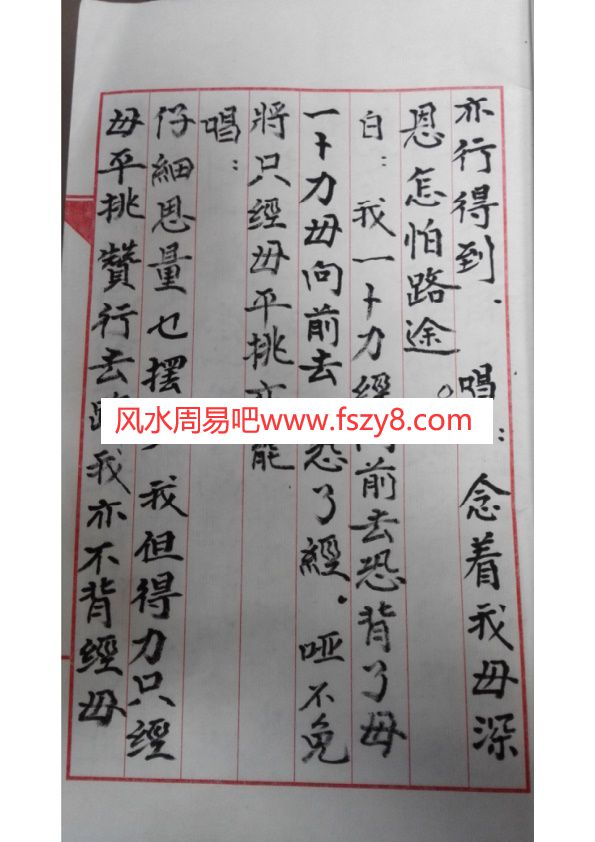 亦行得到．唱：念着我母深
恩怎怕路途。
白：我一下力經向前去恐背了母
一下力母向前去恐了經．哑不免
將只經母平挑亦罷
唱：
仔細思量乜擺我但得力只經
母平挑贊行去路我亦不背經母
风水周易吧www.fszy8.com